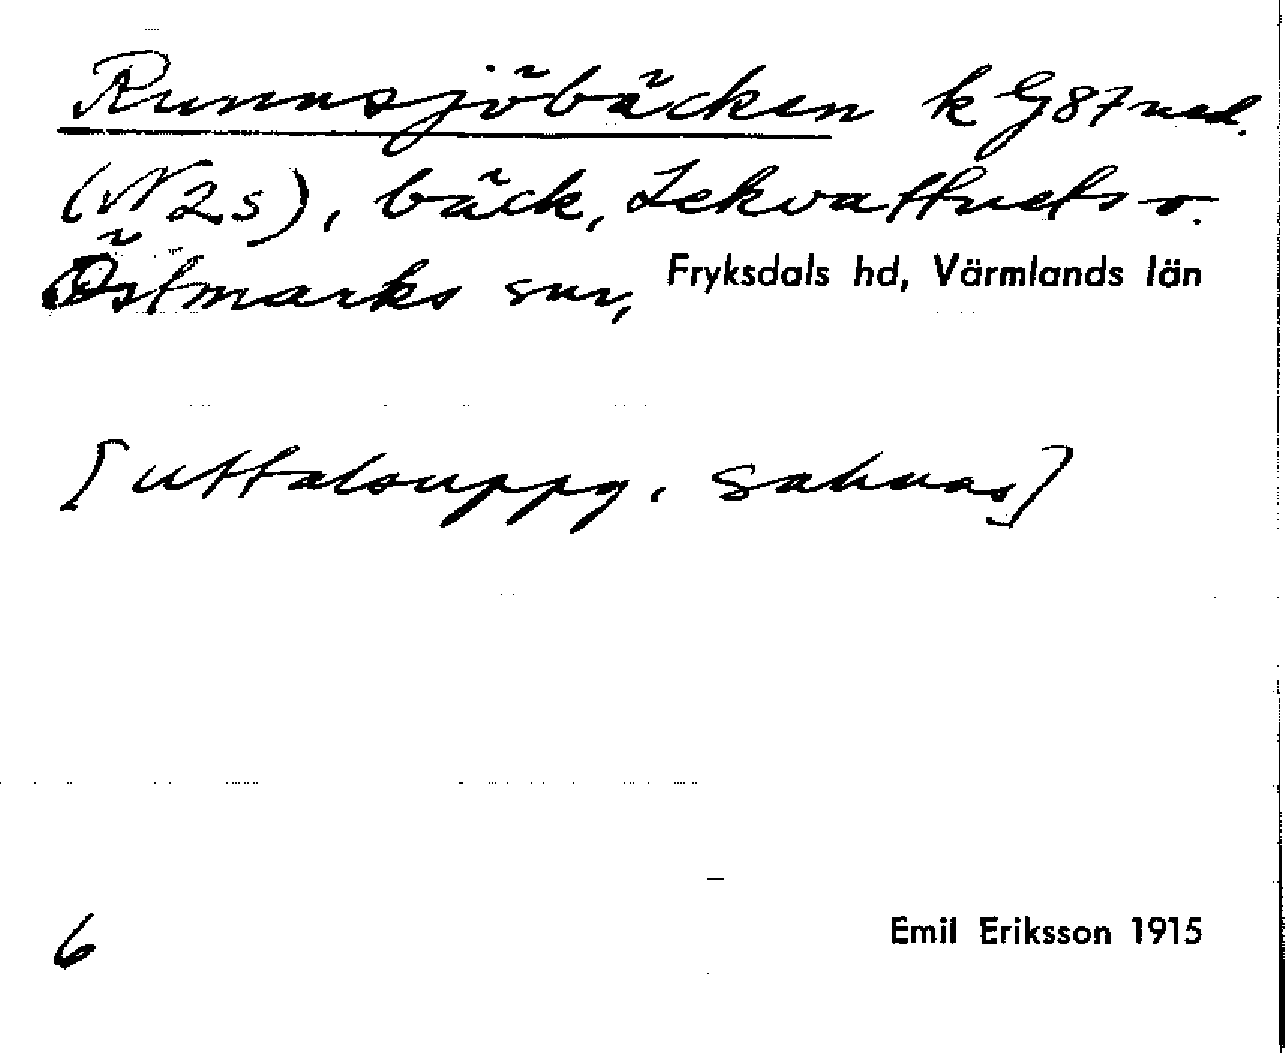 Runnsjöbäcken k G87 ned.
(N2s), bäck, Lekvattnets o.
Östmarks snr, Fryksdals hd, Värmlands län
[uttalsuppg. saknas]
6
Emil Eriksson 1915